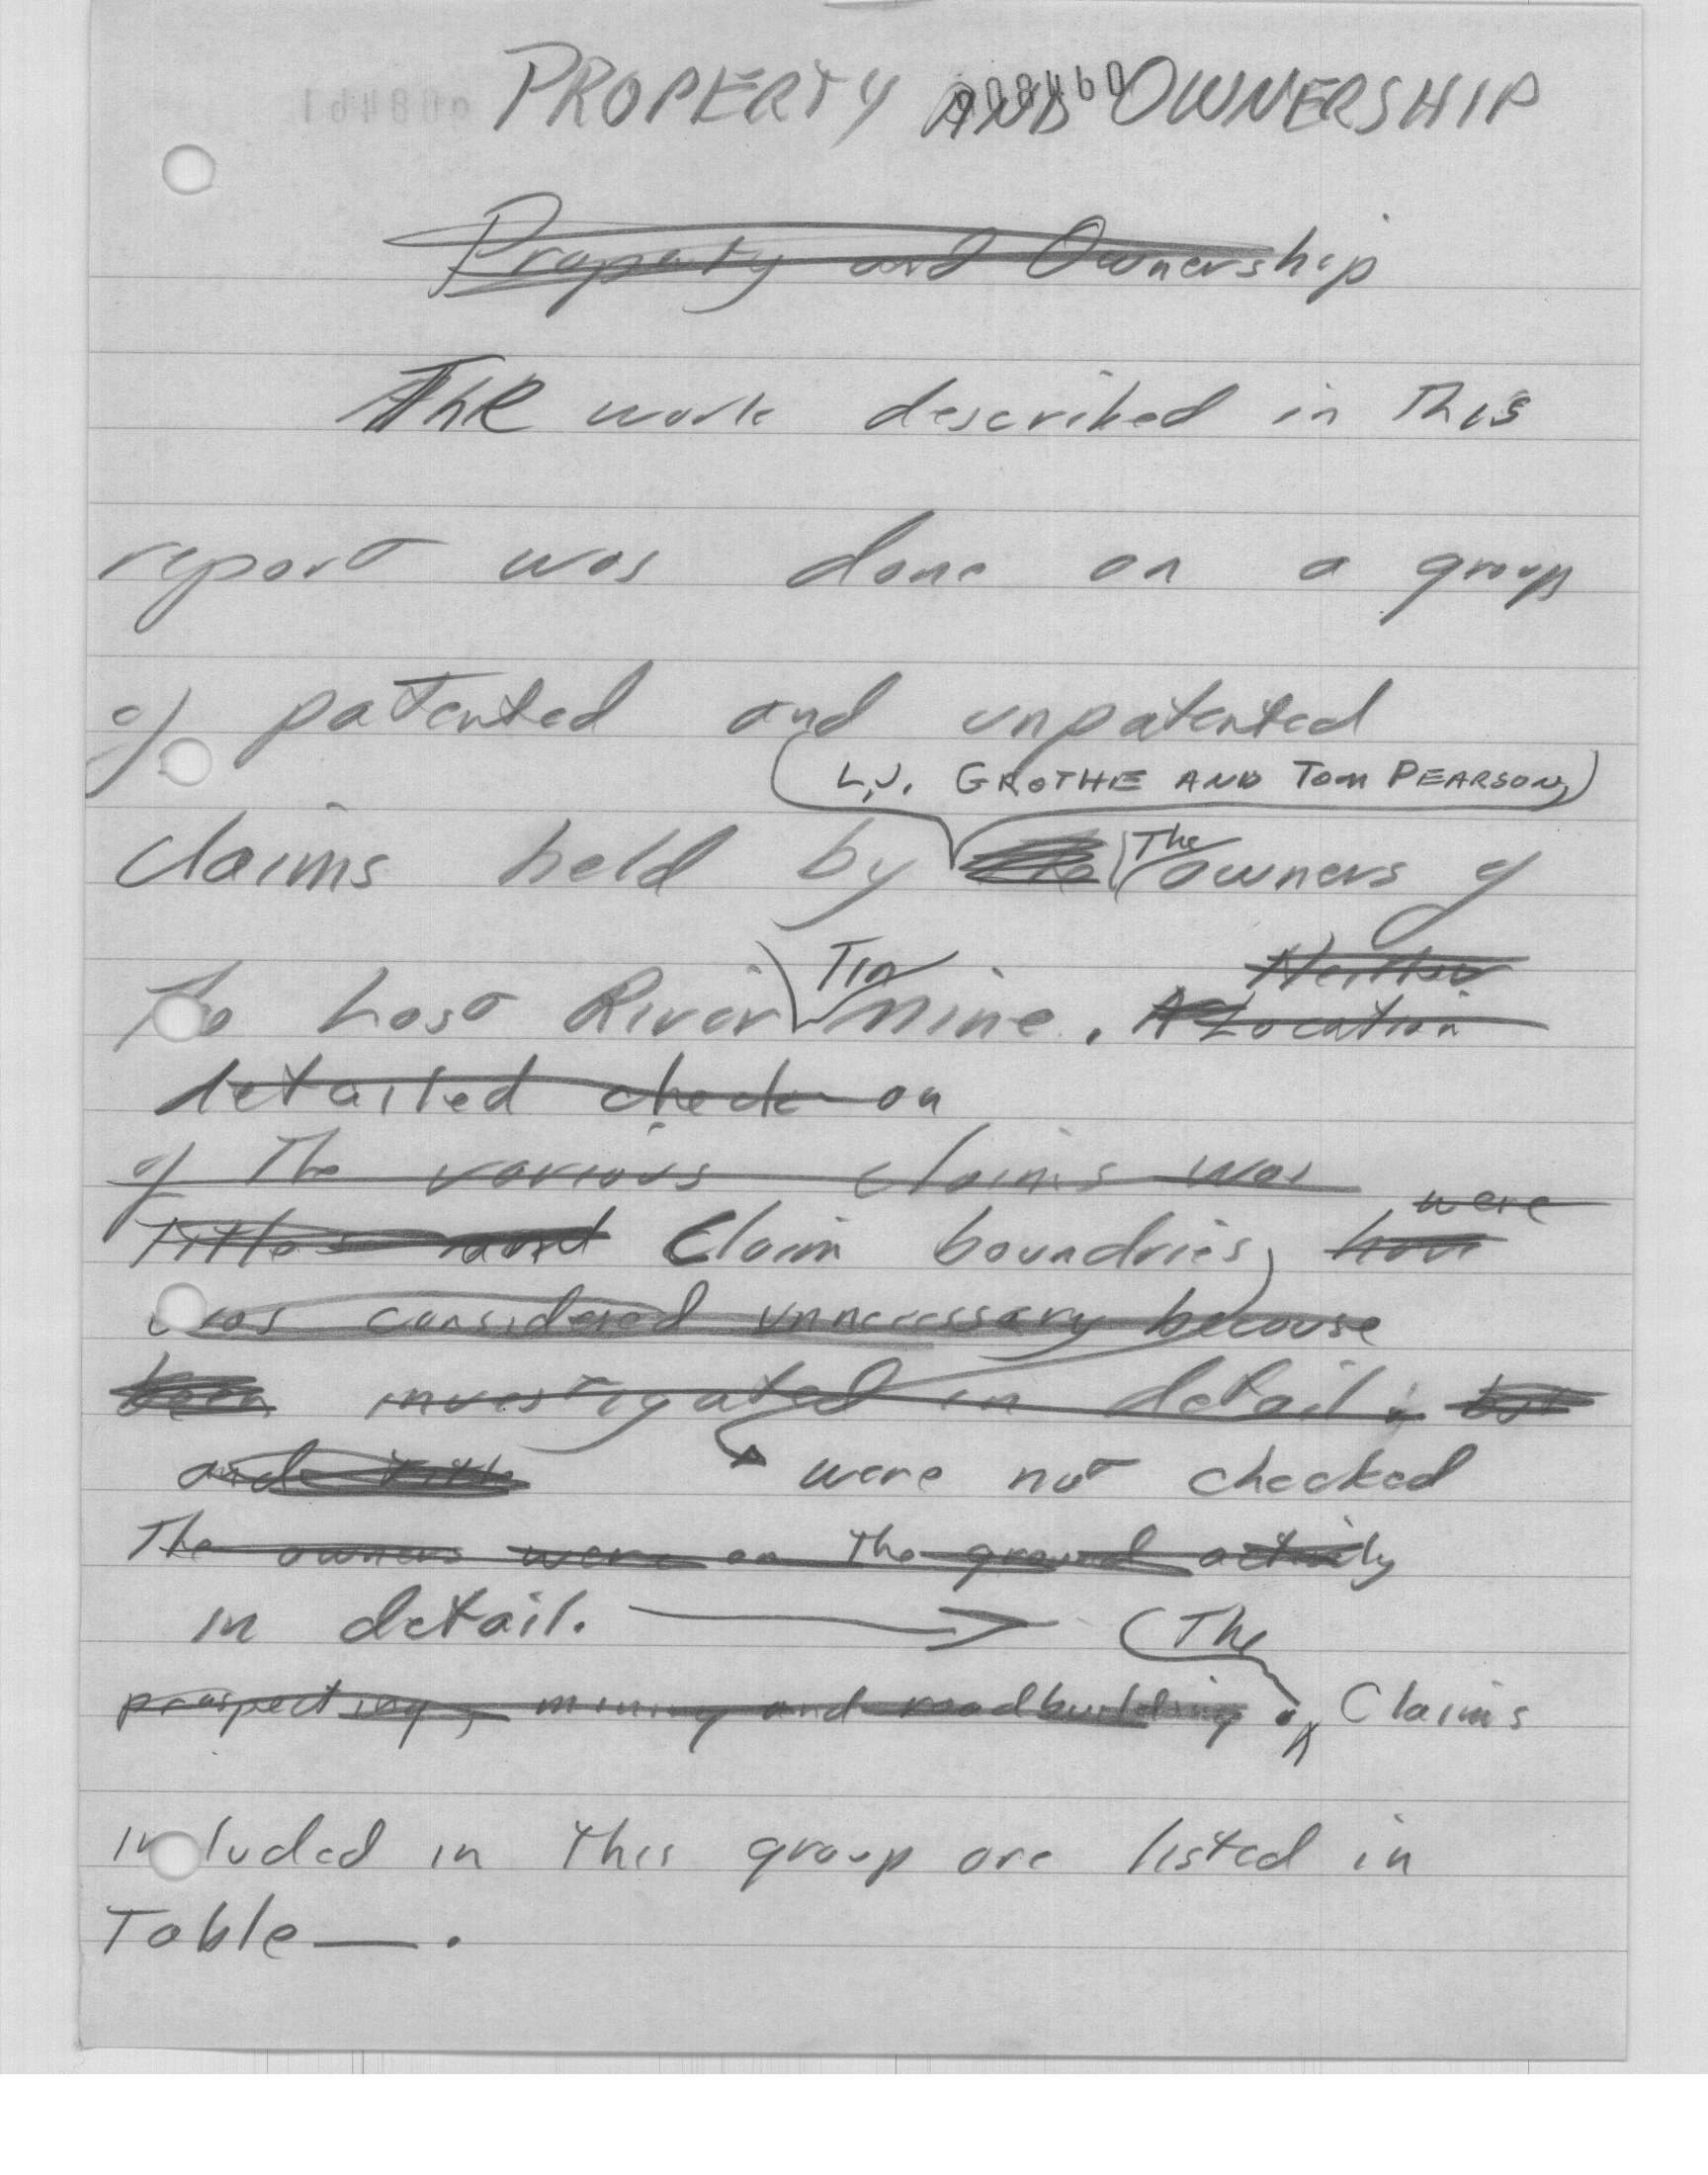 008460
PROPERTY AND OWNERSHIP
Property and Ownership
The work described in this
report was done on a group
of patented and unpatented
L.J. GROTHE AND TOM PEARSON,
claims held by the The owners of
Tin Neither
The Lost River Mine. A Location
detailed check on
of the various claims was
were
Titles and Claim boundries, have
was considered unnecessary because
been investigated in detail; but
and title were not checked
The owners were on the ground actively
in detail. The
prospecting, mining and roadbuilding. Claims
included in this group are listed in
Table —.